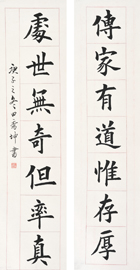 傳家有道惟存厚
處世無奇但率真
庚子之冬田希坤書